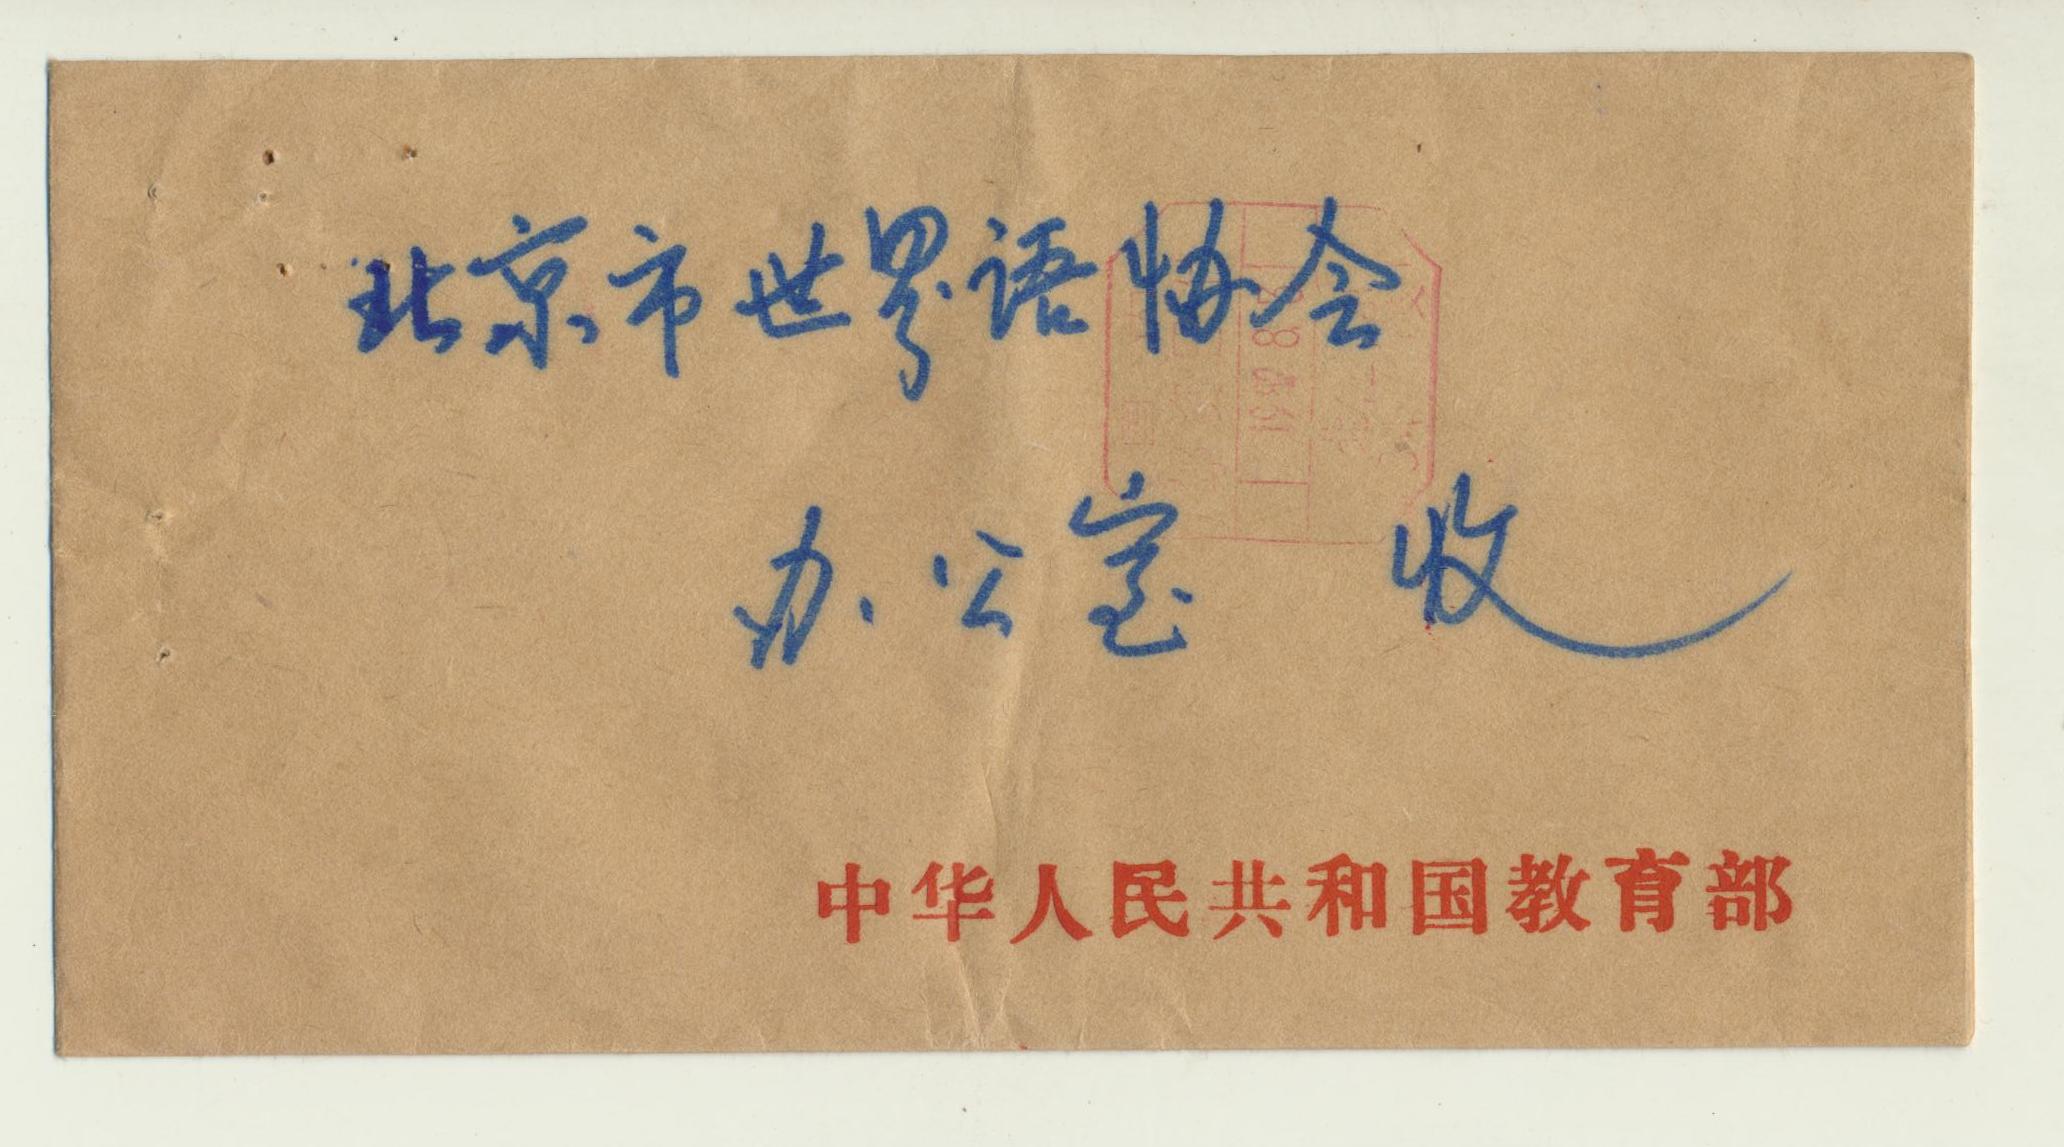 北京市世界语协会
办公室 收
中华人民共和国教育部